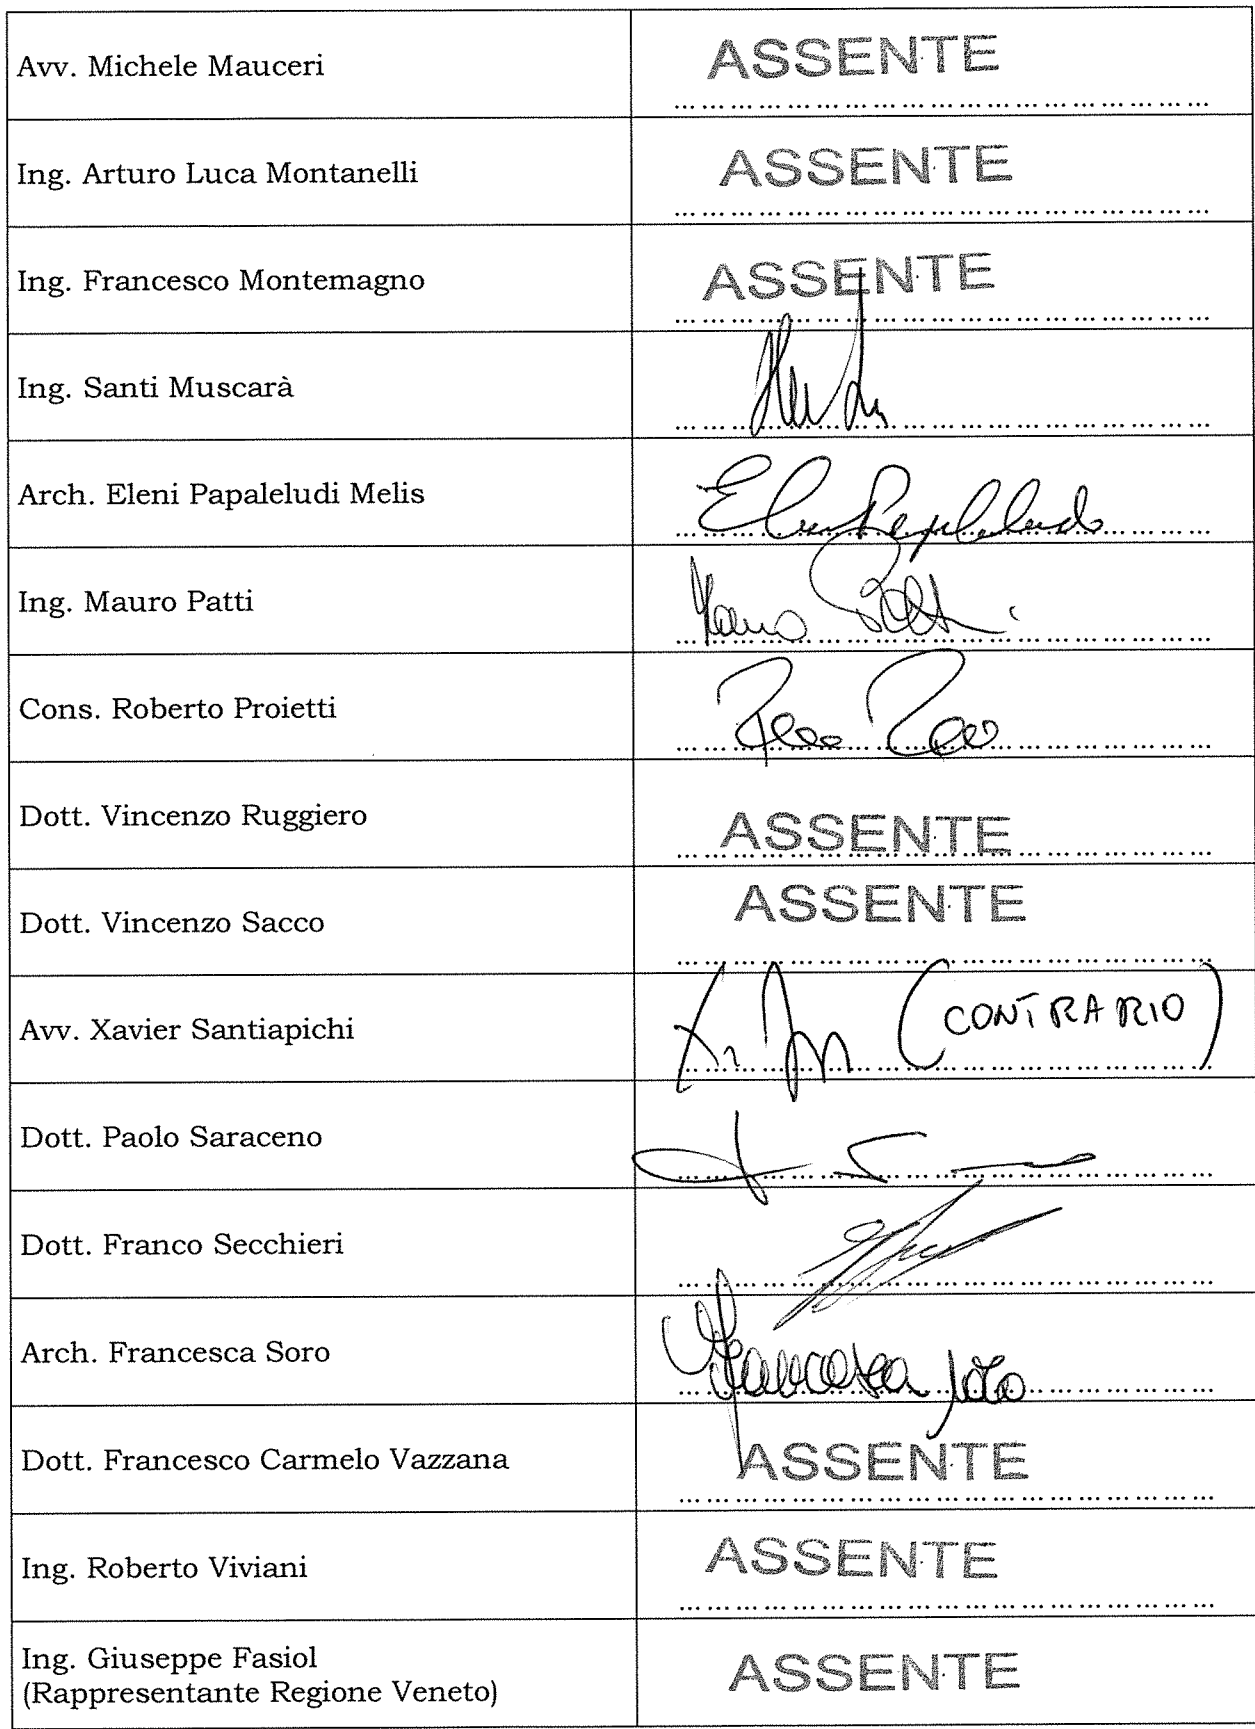 Avv. Michele Mauceri ASSENTE
Ing. Arturo Luca Montanelli ASSENTE
Ing. Francesco Montemagno ASSENTE
Ing. Santi Muscarà
Arch. Eleni Papaleludi Melis
Ing. Mauro Patti
Cons. Roberto Proietti
Dott. Vincenzo Ruggiero ASSENTE
Dott. Vincenzo Sacco ASSENTE
Avv. Xavier Santiapichi (CONTRARIO)
Dott. Paolo Saraceno
Dott. Franco Secchieri
Arch. Francesca Soro Francesca Soro
Dott. Francesco Carmelo Vazzana ASSENTE
Ing. Roberto Viviani ASSENTE
Ing. Giuseppe Fasiol
(Rappresentante Regione Veneto) ASSENTE